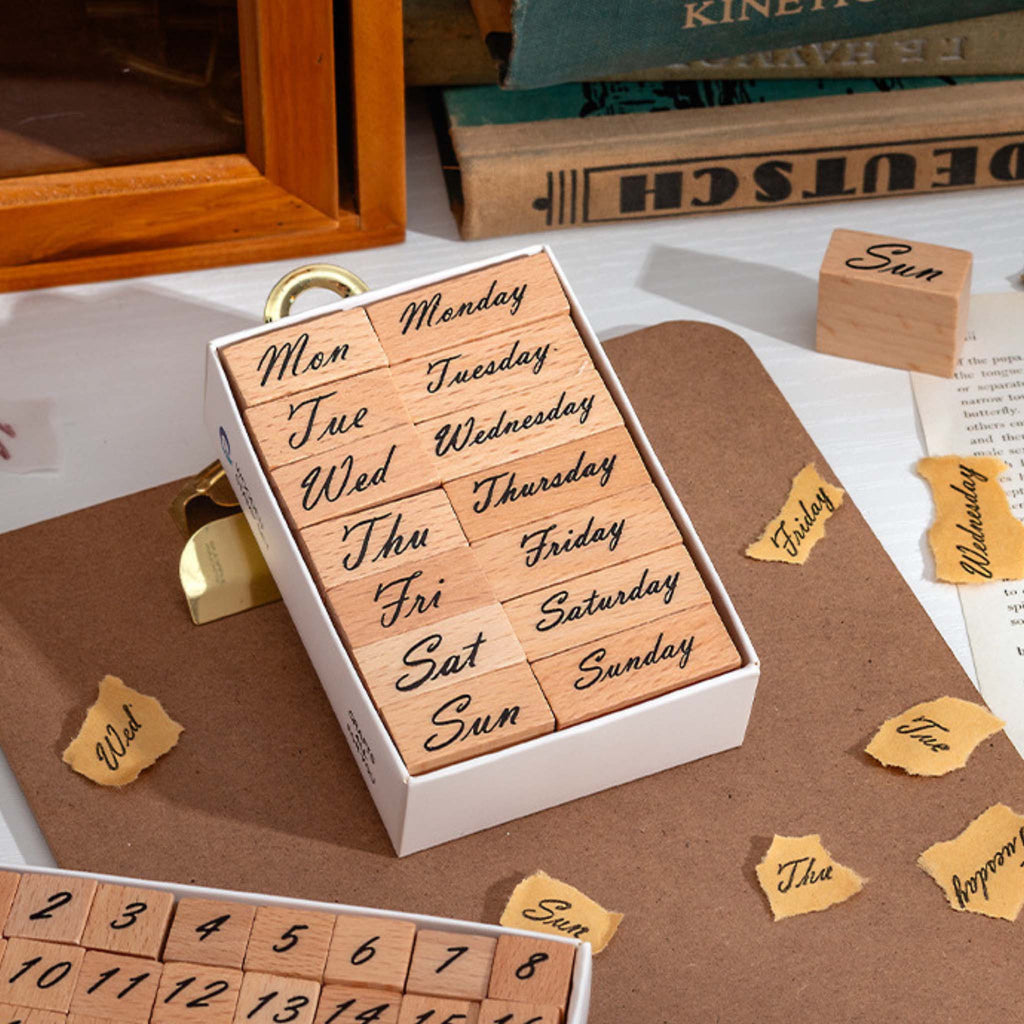 KINETIC
DEUTSCH
Sun
Mon
Monday
Tue
Tuesday
Wed
Wednesday
Thu
Thursday
Fri
Friday
Sat
Saturday
Sun
Sunday
Friday
Wednesday
Wed
Tue
Thu
Tuesday
Sun
2 3 4 5 6 7 8
10 11 12 13 14 15 16
the tongue
or separat
narrow to
butterfly.
others
and the